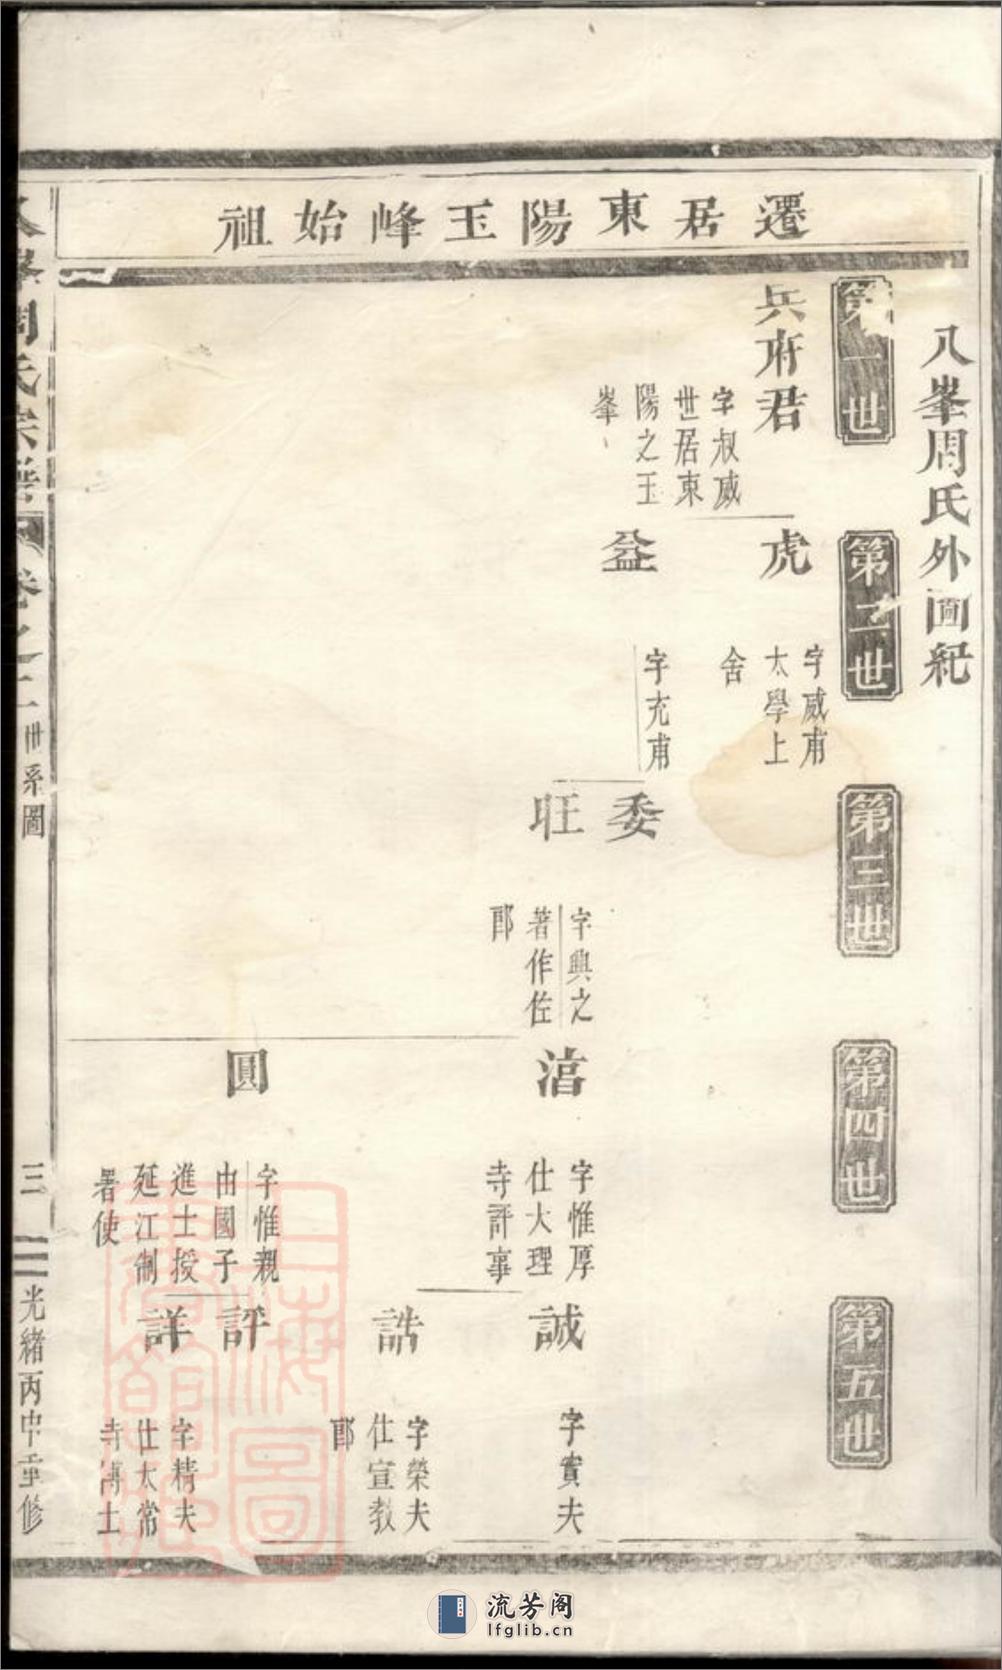 八峯周氏外圖紀
遷居東陽玉峰始祖
第一世
兵府君
字叔威
世居東
陽之玉
峯
第二世
虎
字威甫
太學上
舍
益
字充甫
第三世
委
旺
字興之
著作佐
郎
第四世
字惟厚
仕大理
寺評事
圓
字惟親
由國子
進士授
延江制
署使
第五世
誠
字實夫
誥
字榮夫
仕宣教
郎
評
詳
字精夫
仕太常
寺博士
八峯周氏宗譜
卷之二
世系圖
三
光緒丙申重修
流芳阁
lfglib.cn